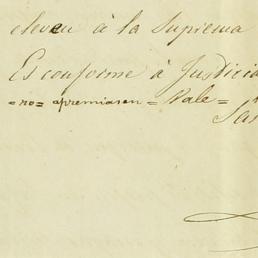 eleven à la Suprema
Es conforme à Justicia
=no= apremiasen = Vale =